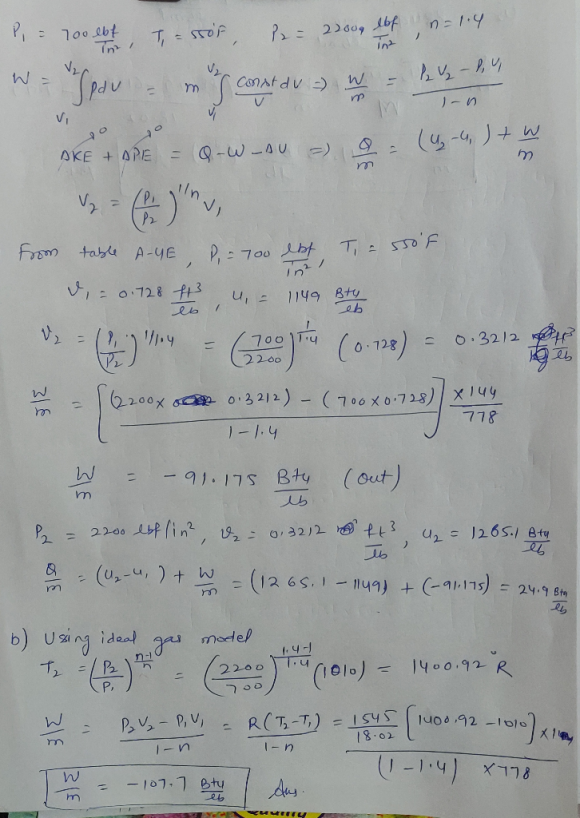 P₁ = 700 lbf/in², T₁ = 550°F, P₂ = 2200 lbf/in², n = 1.4
W = ∫_{V₁}^{V₂} pdV = m ∫_{V₁}^{V₂} Const/V dV => W/m = (P₂V₂ - P₁V₁)/(1-n)
ΔKE→0 + ΔPE→0 = Q-W-ΔU => Q/m = (u₂-u₁) + W/m
V₂ = (P₁/P₂)^{1/n} V₁
From table A-4E, P₁ = 700 lbf/in², T₁ = 550°F
v₁ = 0.728 ft³/lb, u₁ = 1149 Btu/lb
v₂ = (P₁/P₂)^{1/1.4} = (700/2200)^{1/1.4} (0.728) = 0.3212 ft³/lb
W/m = [((2200x 0.3212) - (700x0.728))/(1-1.4)] x144/778
W/m = -91.175 Btu/lb (out)
P₂ = 2200 lbf/in², v₂ = 0.3212 ft³/lb, u₂ = 1265.1 Btu/lb
Q/m = (u₂-u₁) + W/m = (1265.1 - 1149) + (-91.175) = 24.9 Btu/lb
b) Using ideal gas model
T₂ = (P₂/P₁)^{(n-1)/n} = (2200/700)^{(1.4-1)/1.4} (1010) = 1400.92°R
W/m = (P₂V₂ - P₁V₁)/(1-n) = R(T₂-T₁)/(1-n) = (1545/18.02 [1400.92 - 1010])/((1-1.4) x778)
W/m = -107.7 Btu/lb Ans.
Quality